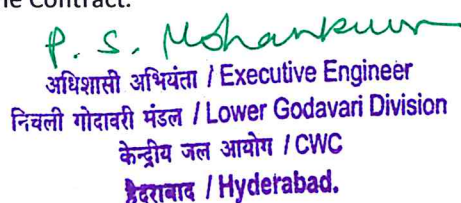 he Contract.
P. S. Mohankum
अधिशासी अभियंता / Executive Engineer
निचली गोदावरी मंडल / Lower Godavari Division
केन्द्रीय जल आयोग / CWC
हैदराबाद / Hyderabad.